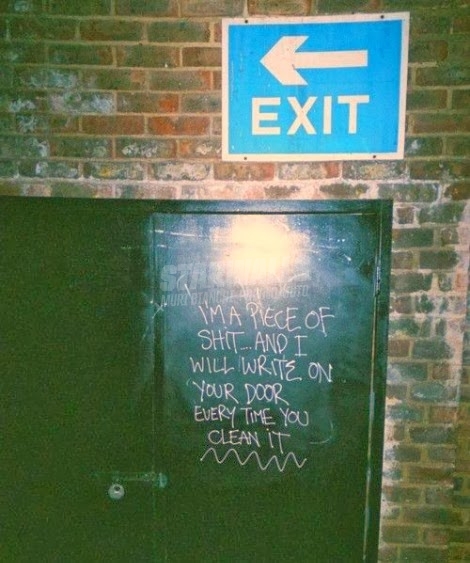 EXIT
I'M A PIECE OF
SHIT...AND I
WILL WRITE ON
YOUR DOOR
EVERY TIME YOU
CLEAN IT